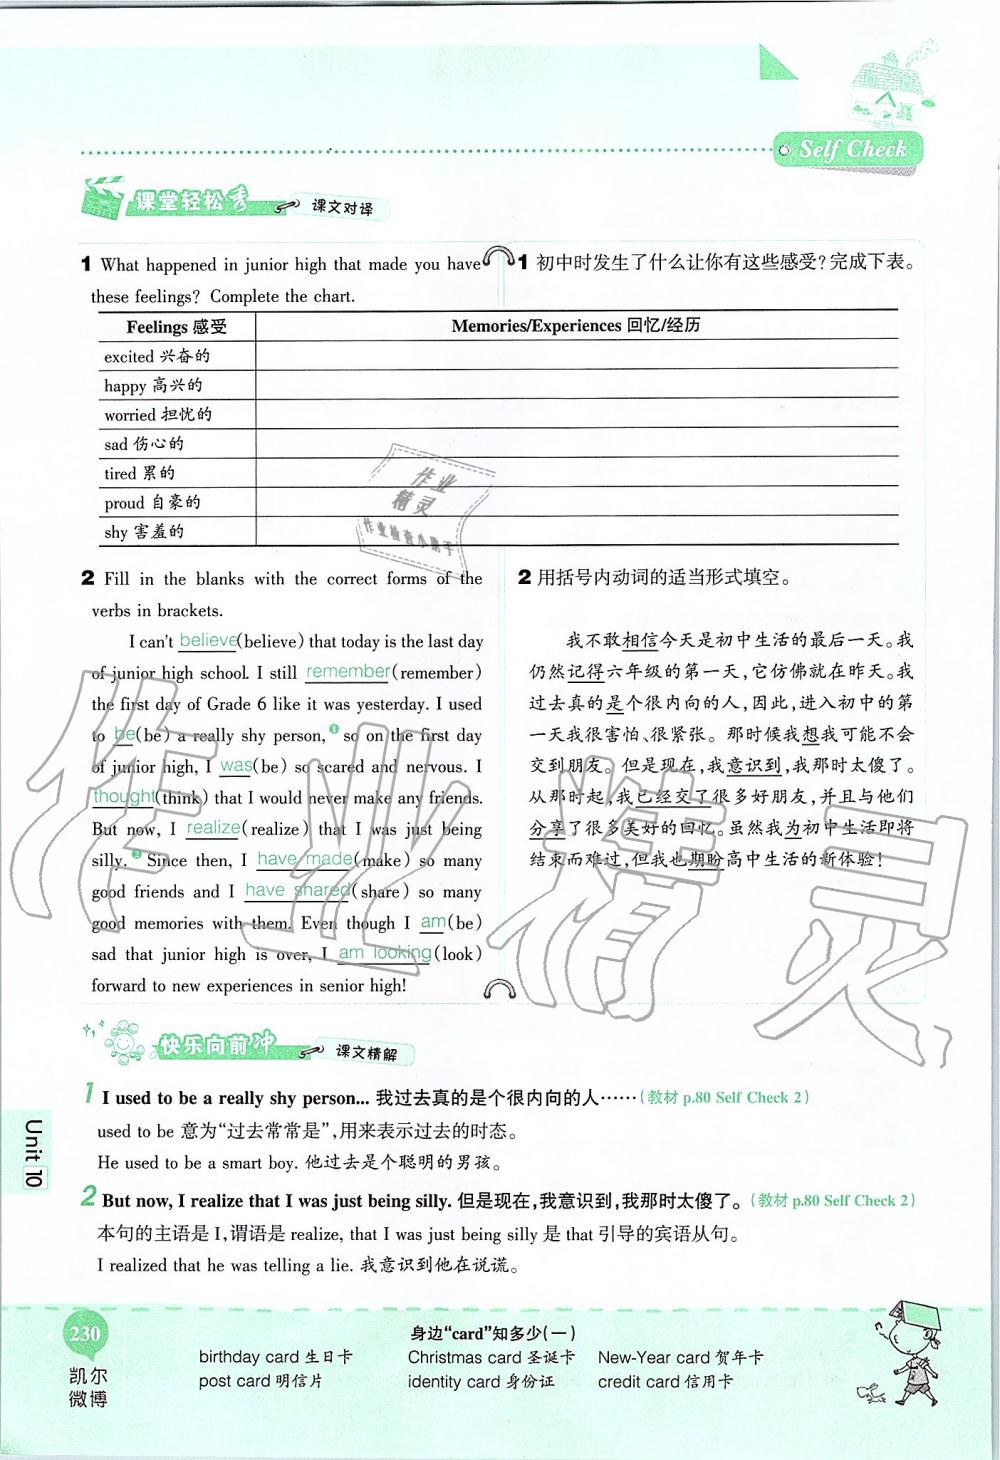 Self Check
课堂轻松秀 课文对译
1 What happened in junior high that made you have
these feelings? Complete the chart.
1 初中时发生了什么让你有这些感受?完成下表。
Feelings 感受 Memories/Experiences 回忆/经历
excited 兴奋的
happy 高兴的
worried 担忧的
sad 伤心的
tired 累的
proud 自豪的
shy 害羞的
2 Fill in the blanks with the correct forms of the
verbs in brackets.
I can't believe(believe) that today is the last day
of junior high school. I still remember(remember)
the first day of Grade 6 like it was yesterday. I used
to be(be) a really shy person,❶ so on the first day
of junior high, I was(be) so scared and nervous. I
thought(think) that I would never make any friends.
But now, I realize(realize) that I was just being
silly.❷ Since then, I have made(make) so many
good friends and I have shared(share) so many
good memories with them. Even though I am(be)
sad that junior high is over, I am looking(look)
forward to new experiences in senior high!
2 用括号内动词的适当形式填空。
我不敢相信今天是初中生活的最后一天。我
仍然记得六年级的第一天,它仿佛就在昨天。我
过去真的是个很内向的人,因此,进入初中的第
一天我很害怕、很紧张。那时候我想我可能不会
交到朋友。但是现在,我意识到,我那时太傻了。
从那时起,我已经交了很多好朋友,并且与他们
分享了很多美好的回忆。虽然我为初中生活即将
结束而难过,但我也期盼高中生活的新体验!
快乐向前冲 课文精解
1 I used to be a really shy person... 我过去真的是个很内向的人……(教材 p.80 Self Check 2)
used to be 意为“过去常常是”,用来表示过去的时态。
He used to be a smart boy. 他过去是个聪明的男孩。
2 But now, I realize that I was just being silly. 但是现在,我意识到,我那时太傻了。(教材 p.80 Self Check 2)
本句的主语是 I,谓语是 realize, that I was just being silly 是 that 引导的宾语从句。
I realized that he was telling a lie. 我意识到他在说谎。
Unit 10
230
凯尔
微博
身边“card”知多少(一)
birthday card 生日卡 Christmas card 圣诞卡 New-Year card 贺年卡
post card 明信片 identity card 身份证 credit card 信用卡
作业
精灵
作业检查小助手
作业精灵